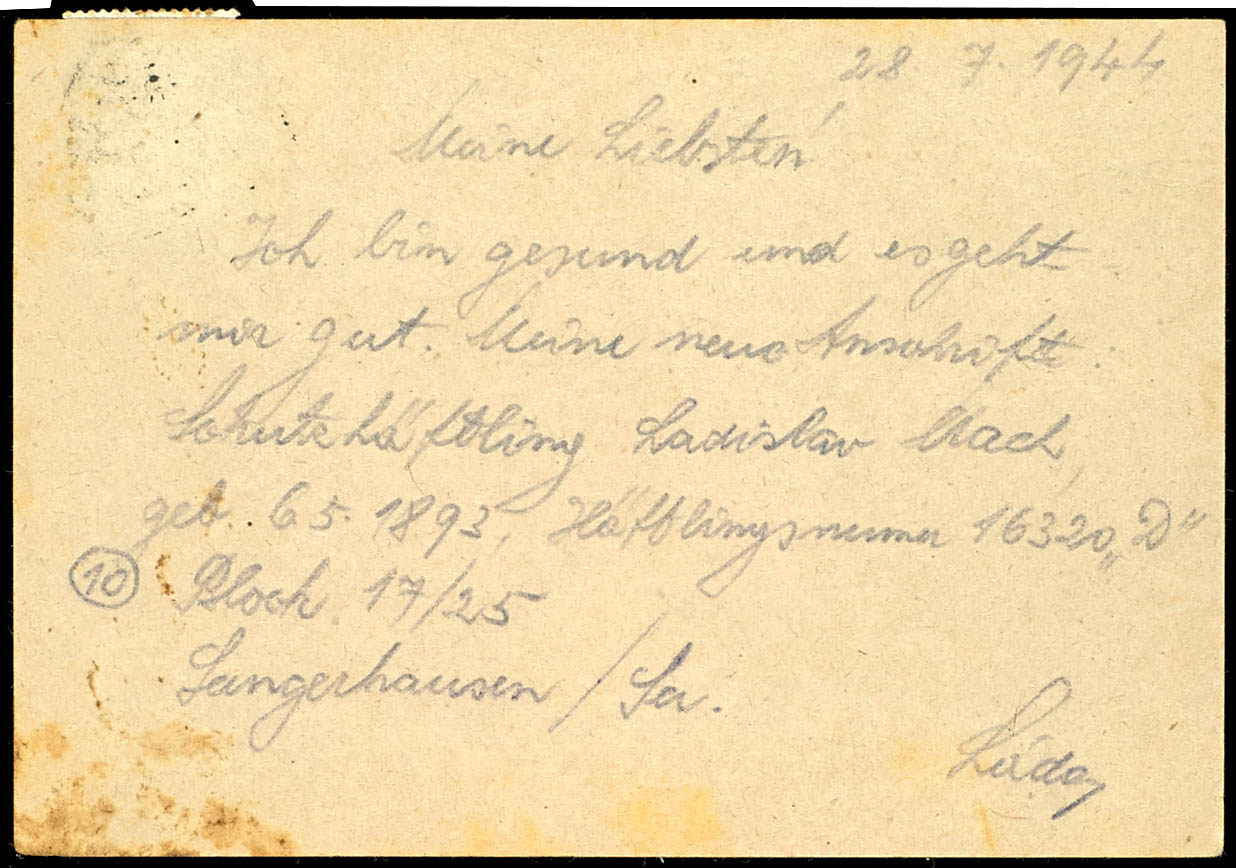 28. 7. 1944
Meine Liebsten!
Ich bin gesund und es geht
mir gut. Meine neue Anschrift:
Schutzhäftling Ladislav Mach,
geb. 6.5.1893, Häftlingsnumer 16320 „D“
(10) Block 17/25
Sangerhausen / Sa.
Láďa